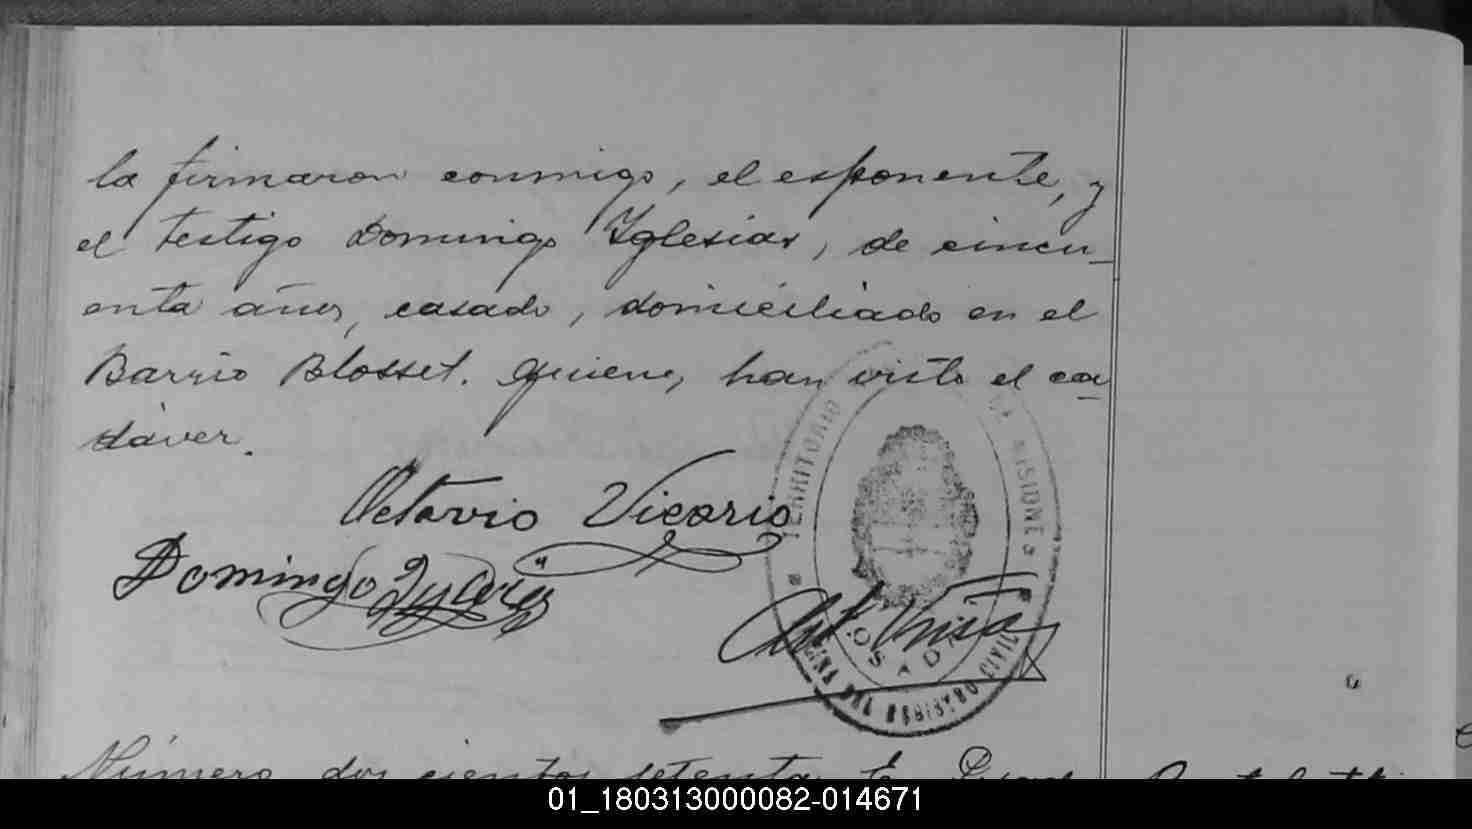 la firmaron conmigo, el esponente, y
el testigo Domingo Iglesias, de cincu-
enta años, casado, domiciliado en el
Barrio Blosset. Quienes han visto el ca-
dáver.
Octavio Vicario
Domingo Iglesias
TERRITORIO DE MISIONES
POSADAS
OFICINA DEL REGISTRO CIVIL
Número dos cientos setenta
01_180313000082-014671